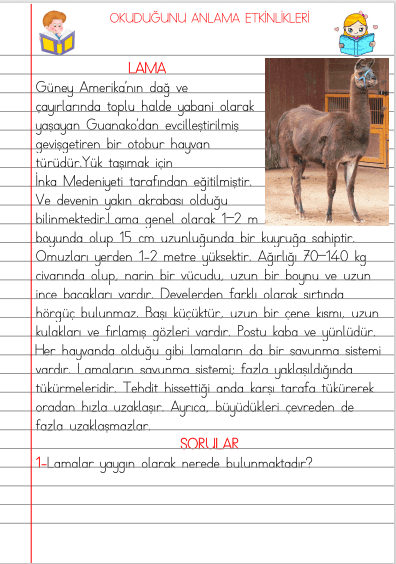 OKUDUĞUNU ANLAMA ETKİNLİKLERİ
LAMA
Güney Amerika'nın dağ ve
çayırlarında toplu halde yabani olarak
yaşayan Guanako'dan evcilleştirilmiş
gevişgetiren bir otobur hayvan
türüdür.Yük taşımak için
İnka Medeniyeti tarafından eğitilmiştir.
Ve devenin yakın akrabası olduğu
bilinmektedir.Lama genel olarak 1-2 m
boyunda olup 15 cm uzunluğunda bir kuyruğa sahiptir.
Omuzları yerden 1-2 metre yüksektir. Ağırlığı 70-140 kg
civarında olup, narin bir vücudu, uzun bir boynu ve uzun
ince bacakları vardır. Develerden farklı olarak sırtında
hörgüç bulunmaz. Başı küçüktür, uzun bir çene kısmı, uzun
kulakları ve fırlamış gözleri vardır. Postu kaba ve yünlüdür.
Her hayvanda olduğu gibi lamaların da bir savunma sistemi
vardır. Lamaların savunma sistemi; fazla yaklaşıldığında
tükürmeleridir. Tehdit hissettiği anda karşı tarafa tükürerek
oradan hızla uzaklaşır. Ayrıca, büyüdükleri çevreden de
fazla uzaklaşmazlar.
SORULAR
1-Lamalar yaygın olarak nerede bulunmaktadır?